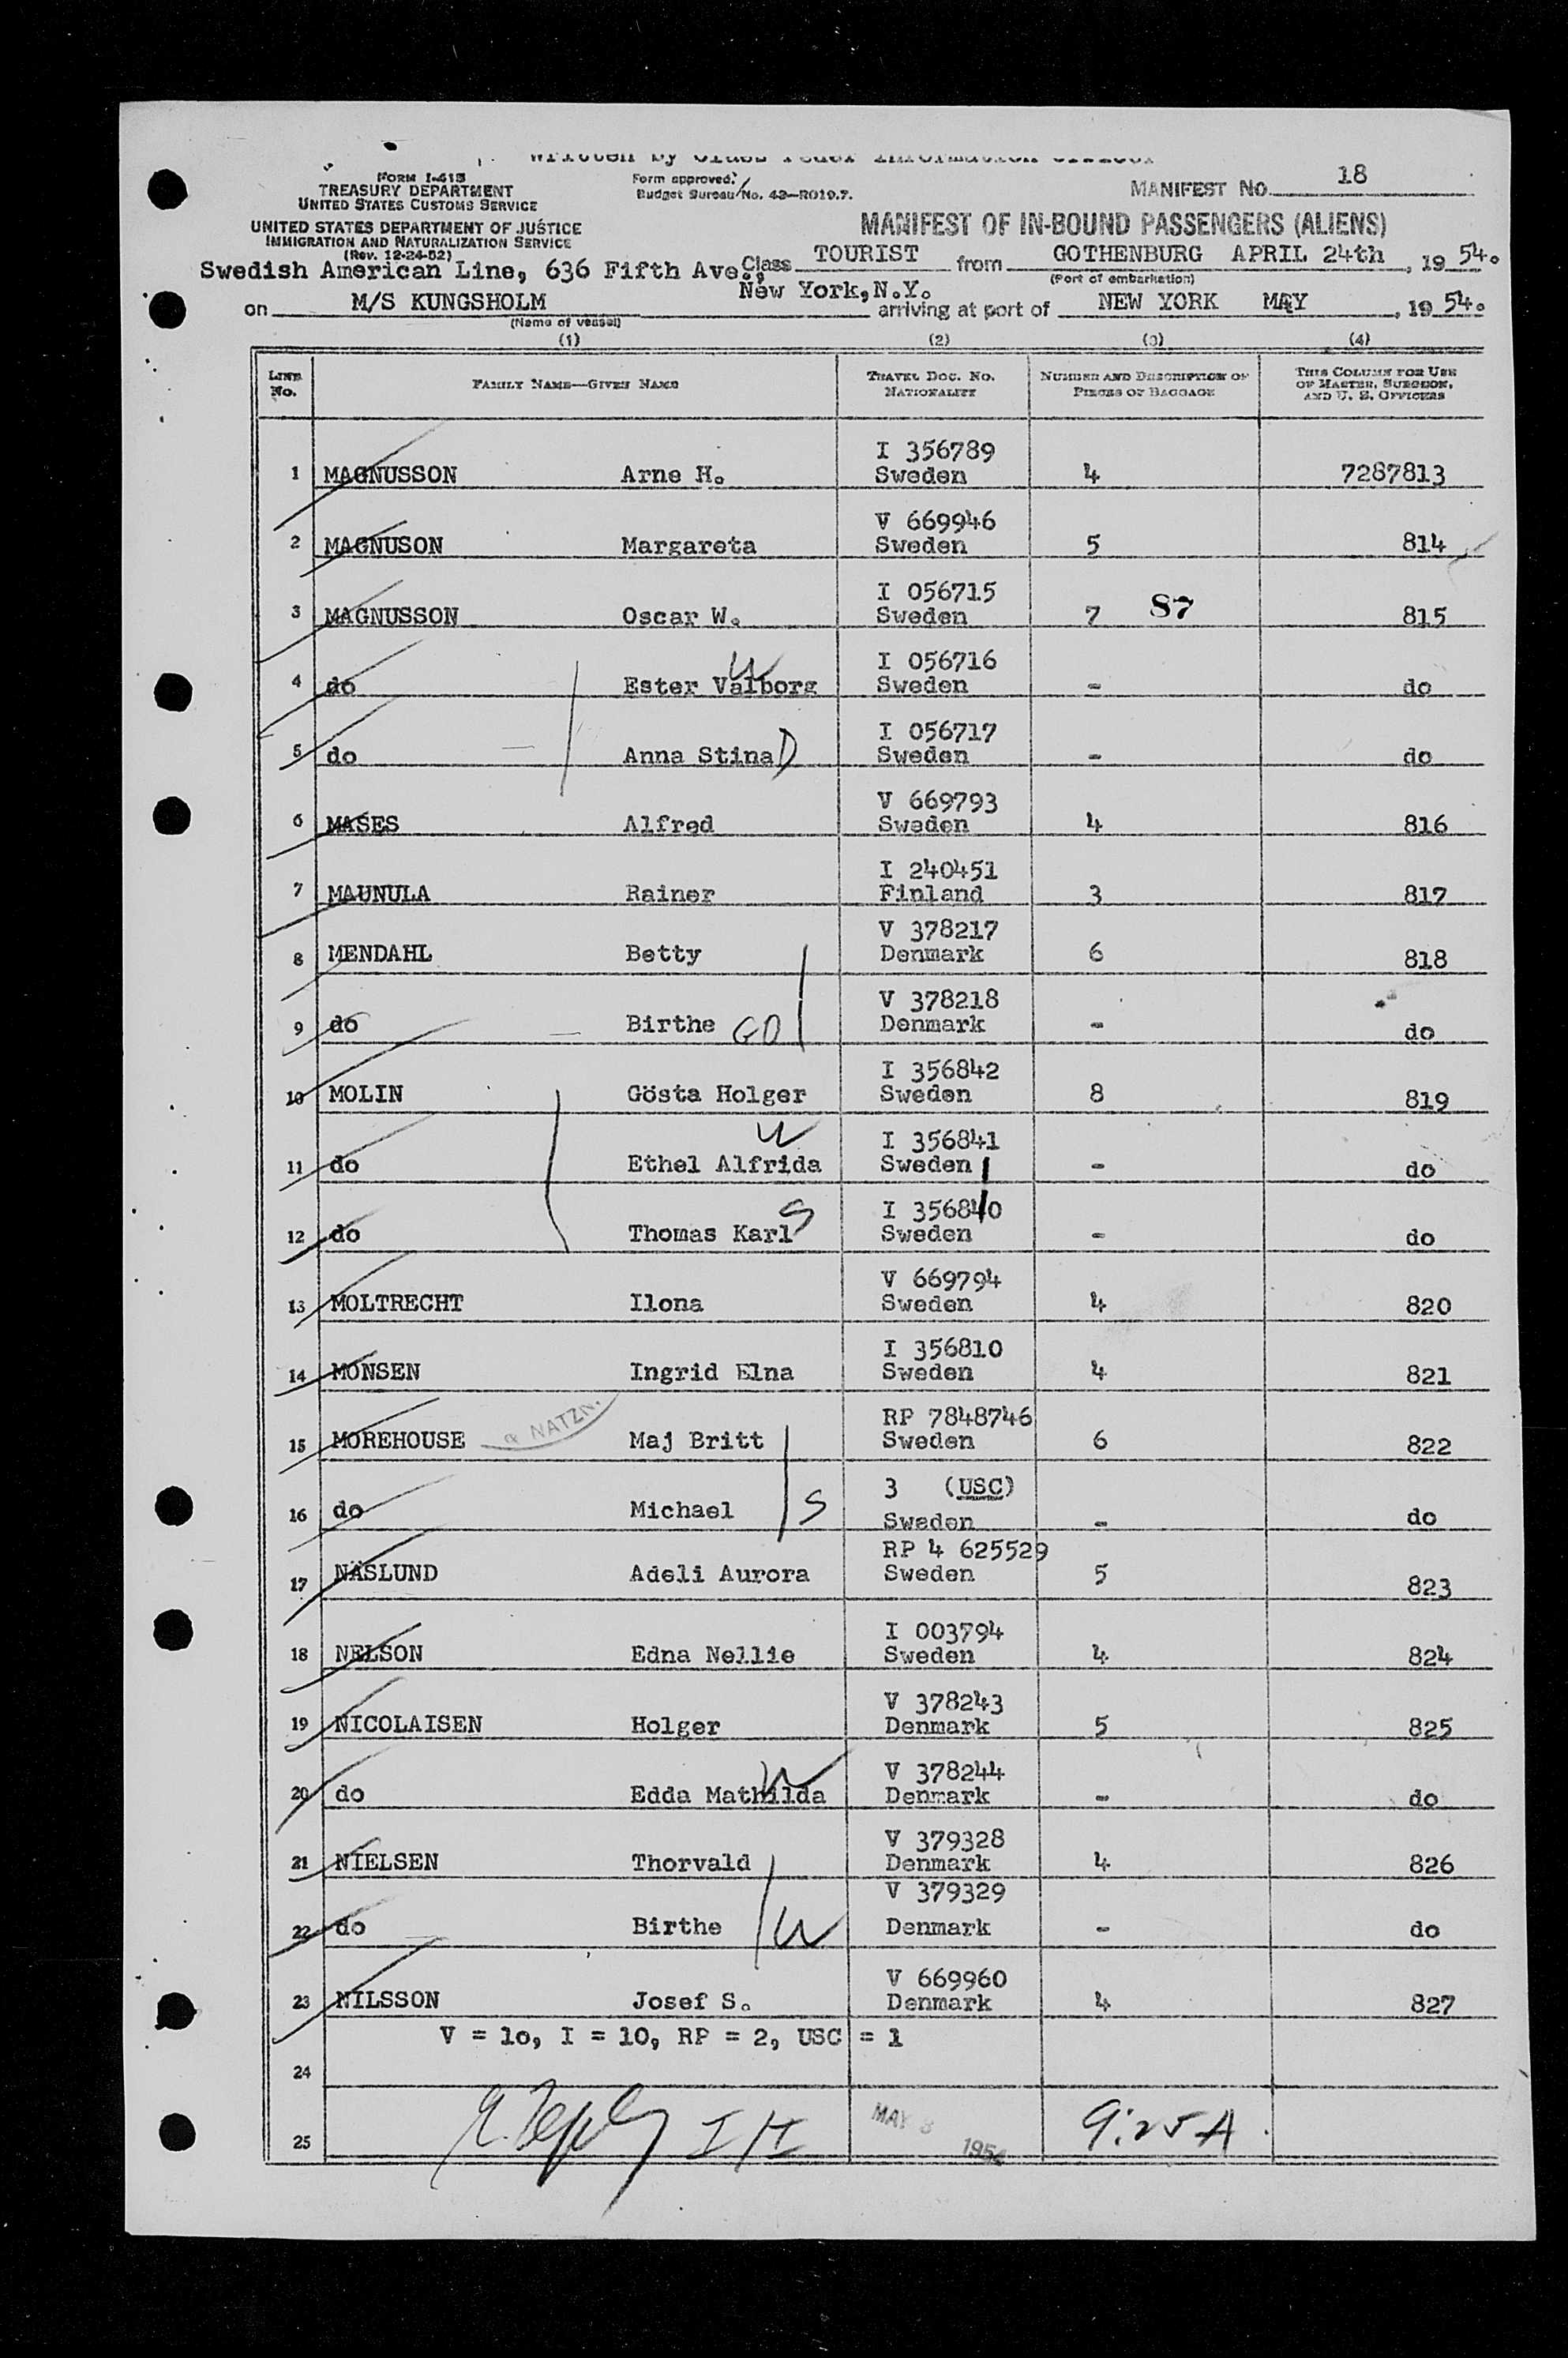 FORM I-418
TREASURY DEPARTMENT
UNITED STATES CUSTOMS SERVICE
UNITED STATES DEPARTMENT OF JUSTICE
IMMIGRATION AND NATURALIZATION SERVICE
(Rev. 12-24-52)
Form approved.
Budget Bureau No. 43—R019.7.
MANIFEST NO. 18
MANIFEST OF IN-BOUND PASSENGERS (ALIENS)
Swedish American Line, 636 Fifth Ave., Class TOURIST from GOTHENBURG APRIL 24th, 1954.
New York, N.Y. (Port of embarkation)
on M/S KUNGSHOLM arriving at port of NEW YORK MAY, 1954.
(Name of vessel)
(1) (2) (3) (4)
LINE No. FAMILY NAME—GIVEN NAME TRAVEL DOC. NO. NATIONALITY NUMBER AND DESCRIPTION OF PIECES OF BAGGAGE THIS COLUMN FOR USE OF MASTER, SURGEON, AND U. S. OFFICERS
I 356789
1 MAGNUSSON Arne H. Sweden 4 7287813
V 669946
2 MAGNUSON Margareta Sweden 5 814
I 056715
3 MAGNUSSON Oscar W. Sweden 7 87 815
W I 056716
4 do Ester Valborg Sweden - do
I 056717
5 do Anna Stina D Sweden - do
V 669793
6 MASES Alfred Sweden 4 816
I 240451
7 MAUNULA Rainer Finland 3 817
V 378217
8 MENDAHL Betty Denmark 6 818
V 378218
9 do Birthe GD Denmark - do
I 356842
10 MOLIN Gösta Holger Sweden 8 819
W I 356841
11 do Ethel Alfrida Sweden - do
I 356840
12 do Thomas Karl S Sweden - do
V 669794
13 MOLTRECHT Ilona Sweden 4 820
I 356810
14 MONSEN Ingrid Elna Sweden 4 821
NATZN. RP 7848746
15 MOREHOUSE Maj Britt Sweden 6 822
3 (USC)
16 do Michael S Sweden - do
RP 4 625529
17 NÄSLUND Adeli Aurora Sweden 5 823
I 003794
18 NELSON Edna Nellie Sweden 4 824
V 378243
19 NICOLAISEN Holger Denmark 5 825
W V 378244
20 do Edda Mathilda Denmark - do
V 379328
21 NIELSEN Thorvald Denmark 4 826
V 379329
22 do Birthe W Denmark - do
V 669960
23 NILSSON Josef S. Denmark 4 827
V = 1o, I = 10, RP = 2, USC = 1
24
25 MAY 3 1954 9:25 A